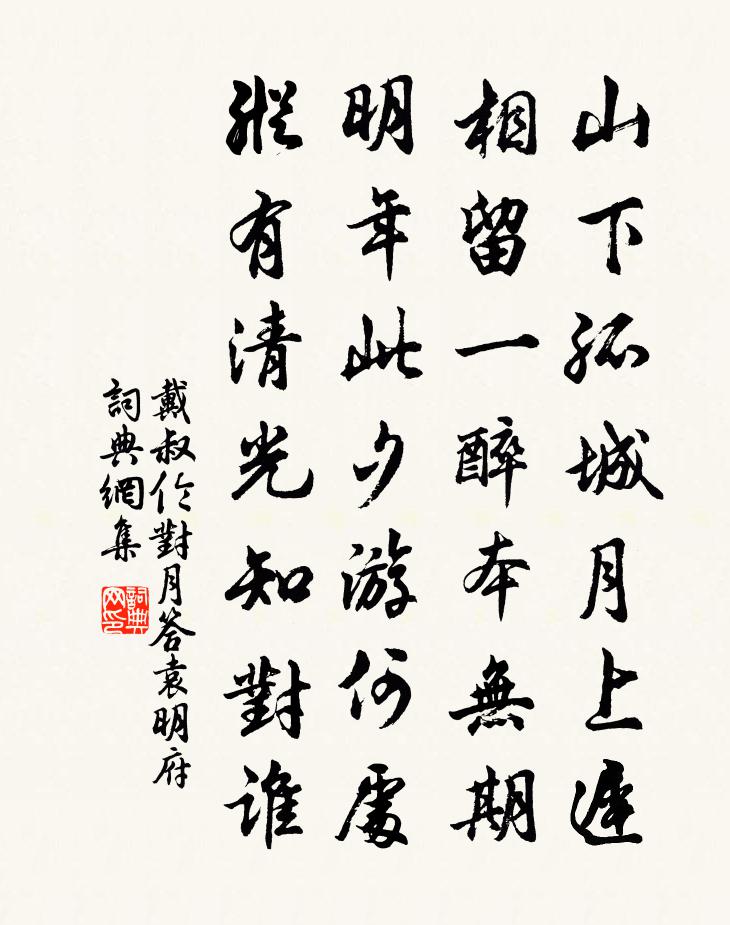 山下孤城月上遲
相留一醉本無期
明年此夕游何處
縱有清光知對誰
戴叔伦對月答袁明府
詞典網集
詞典
网印